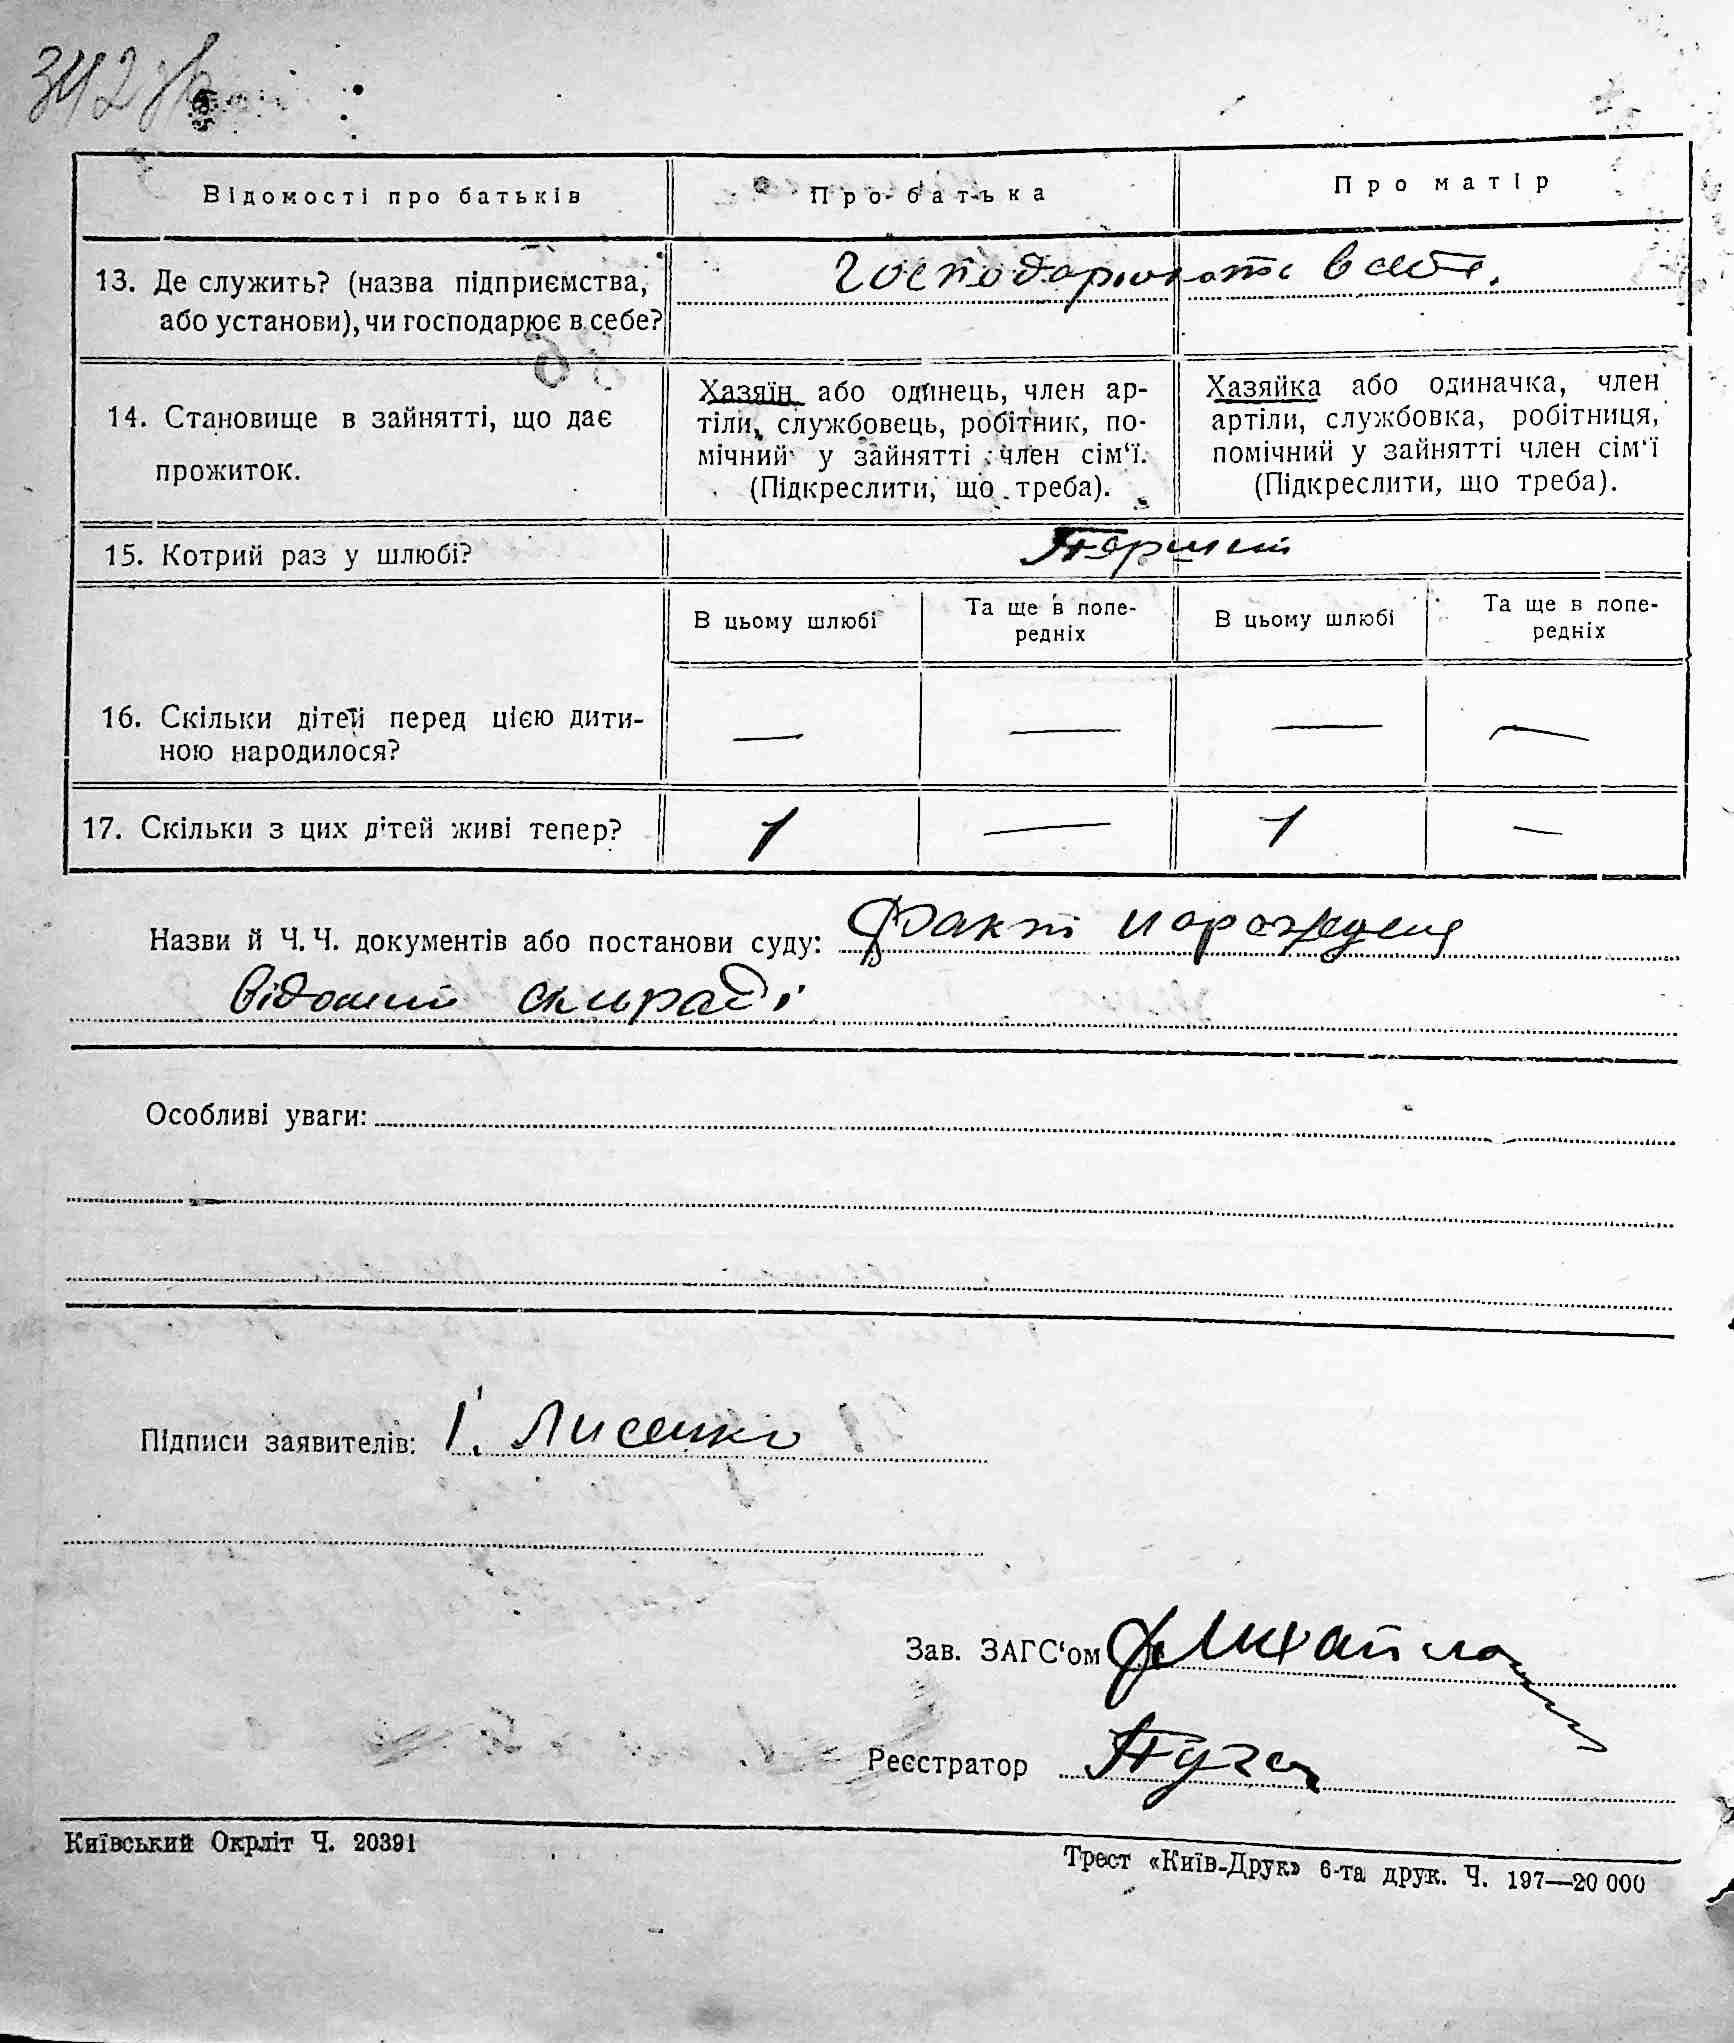 342
Відомості про батьків
Про батька
Про матір
13. Де служить? (назва підприємства,
або установи), чи господарює в себе?
Господарюють в себе.
14. Становище в зайнятті, що дає
прожиток.
Хазяїн або одинець, член ар-
тіли, службовець, робітник, по-
мічний у зайнятті член сім‘ї.
(Підкреслити, що треба).
Хазяйка або одиначка, член
артіли, службовка, робітниця,
помічний у зайнятті член сім‘ї
(Підкреслити, що треба).
15. Котрий раз у шлюбі?
Перший
В цьому шлюбі
Та ще в попе-
редніх
В цьому шлюбі
Та ще в попе-
редніх
16. Скільки дітей перед цією дити-
ною народилося?
— — — —
17. Скільки з цих дітей живі тепер?
1 — 1 —
Назви й Ч. Ч. документів або постанови суду: Факт народження
відомий сільраді
Особливі уваги:
Підписи заявителів: І. Лисенко
Зав. ЗАГС‘ом
Реєстратор Пуга
Київський Окрліт Ч. 20391
Трест «Київ-Друк» 6-та друк. Ч. 197—20 000